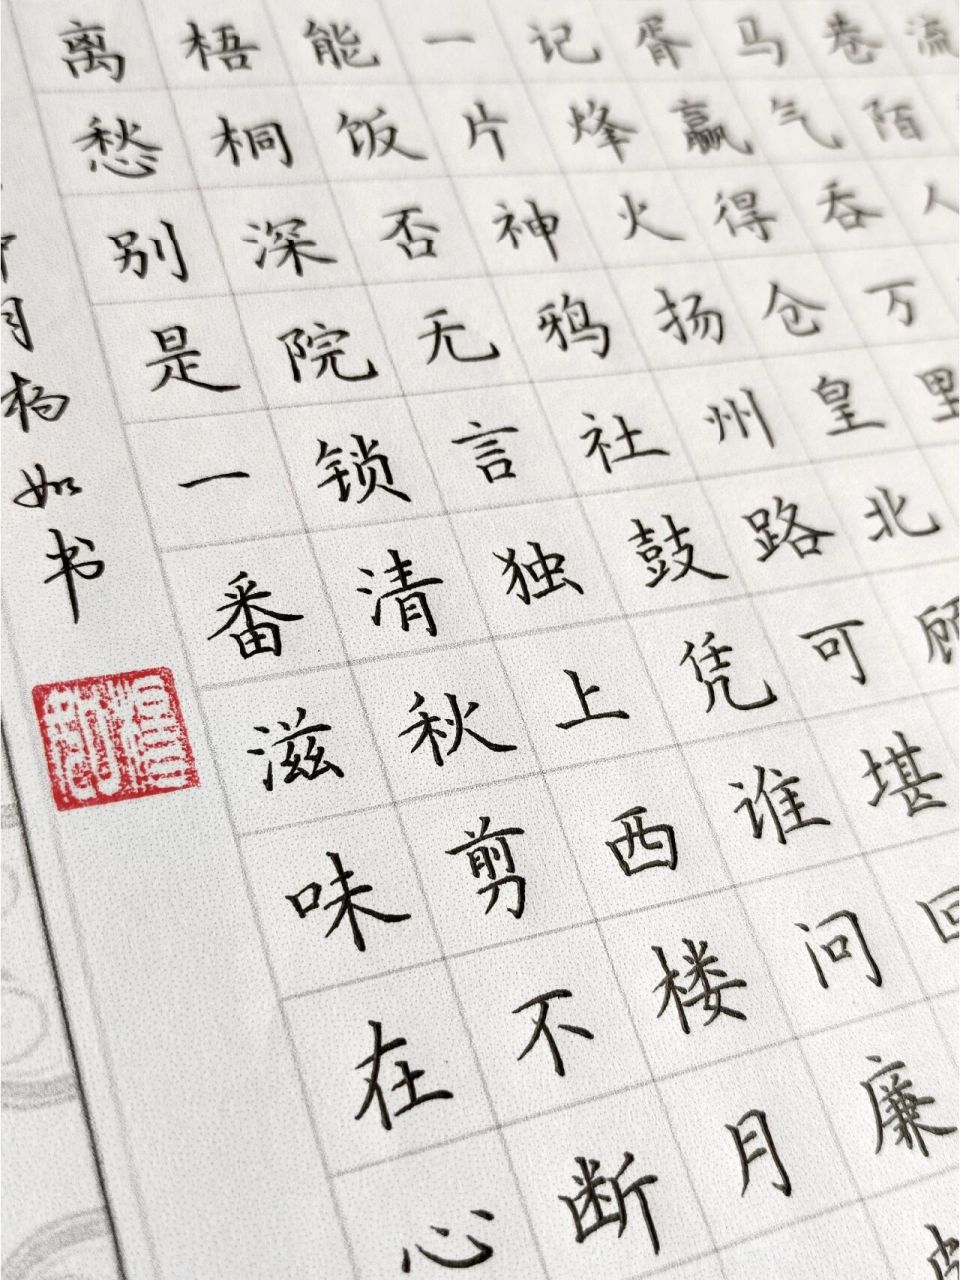 流
巷陌人
马气吞万里
胥赢得仓皇北顾
记烽火扬州路可堪回
一片神鸦社鼓凭谁问廉
能饭否无言独上西楼月
梧桐深院锁清秋剪不断
离愁别是一番滋味在心
月杨如书